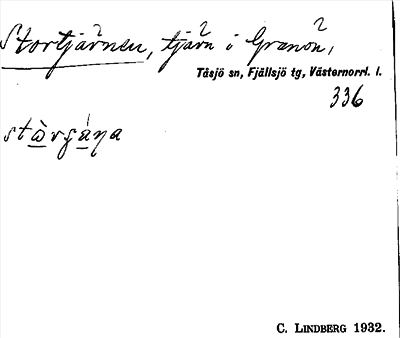 Stortjärnen, tjärn i Granön,
Tåsjö sn, Fjällsjö tg, Västernorrl. l.
336
C. LINDBERG 1932.